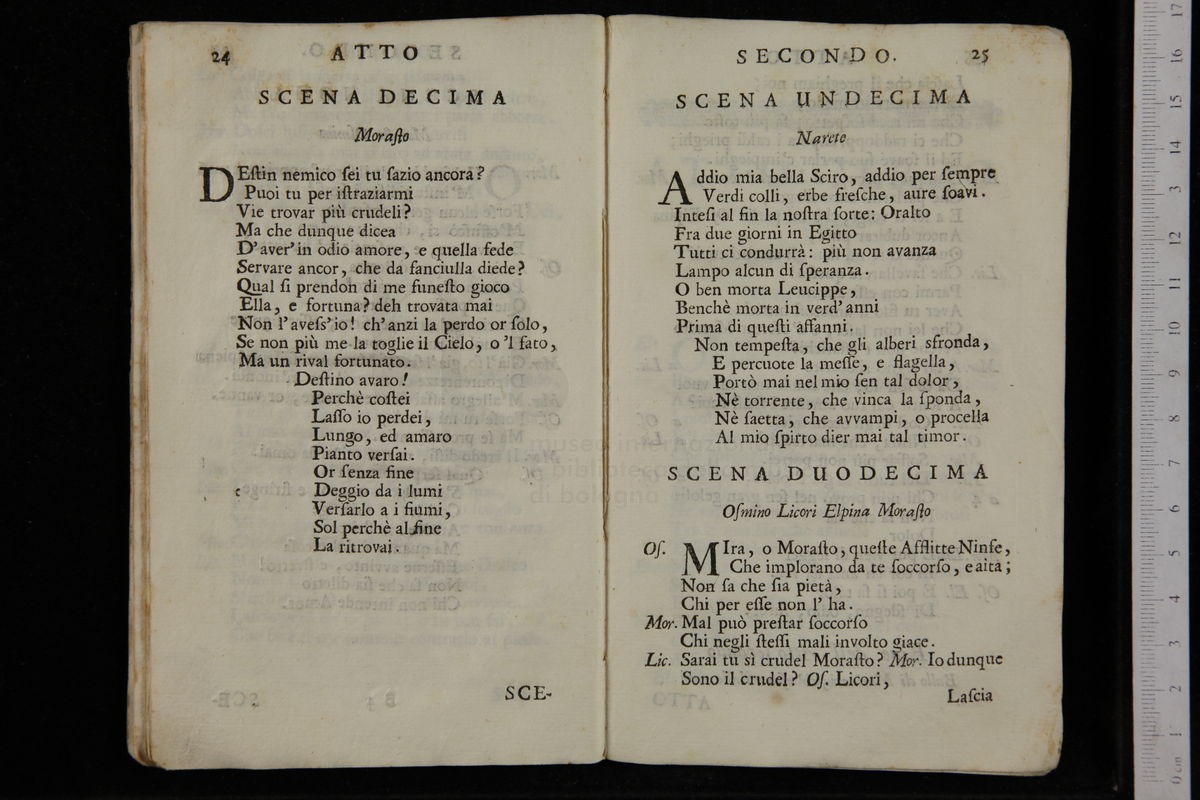 24 ATTO
SCENA DECIMA
Moraſto
DEſtin nemico ſei tu ſazio ancora?
Puoi tu per iſtraziarmi
Vie trovar più crudeli?
Ma che dunque dicea
D'aver'in odio amore, e quella fede
Servare ancor, che da fanciulla diede?
Qual ſi prendon di me funeſto gioco
Ella, e fortuna? deh trovata mai
Non l'aveſs'io! ch'anzi la perdo or ſolo,
Se non più me la toglie il Cielo, o 'l fato,
Ma un rival fortunato.
Deſtino avaro!
Perchè coſtei
Laſſo io perdei,
Lungo, ed amaro
Pianto verſai.
Or ſenza fine
Deggio da i lumi
Verſarlo a i fiumi,
Sol perchè al fine
La ritrovai.
SCE-
SECONDO. 25
SCENA UNDECIMA
Narete
Addio mia bella Sciro, addio per ſempre
Verdi colli, erbe freſche, aure ſoavi.
Inteſi al fin la noſtra ſorte: Oralto
Fra due giorni in Egitto
Tutti ci condurrà: più non avanza
Lampo alcun di ſperanza.
O ben morta Leucippe,
Benchè morta in verd' anni
Prima di queſti affanni.
Non tempeſta, che gli alberi sfronda,
E percuote la meſſe, e flagella,
Portò mai nel mio ſen tal dolor,
Nè torrente, che vinca la ſponda,
Nè ſaetta, che avvampi, o procella
Al mio ſpirto dier mai tal timor.
SCENA DUODECIMA
Oſmino Licori Elpina Moraſto
Oſ. MIra, o Moraſto, queſte Afflitte Ninfe,
Che implorano da te ſoccorſo, e aita;
Non ſa che ſia pietà,
Chi per eſſe non l' ha.
Mor. Mal può preſtar ſoccorſo
Chi negli ſteſſi mali involto giace.
Lic. Sarai tu sì crudel Moraſto? Mor. Io dunque
Sono il crudel? Oſ. Licori,
Laſcia